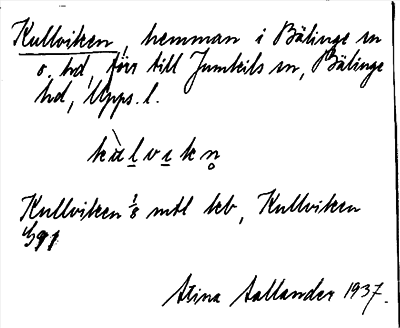 Kullviken, hemman i Bälinge sn
o. hd, förr till Jumkils sn, Bälinge
hd, Upps. l.
kùlvıkn̥
Kullviken 1/8 mtl kb, Kullviken
Stina Aallander 1937.